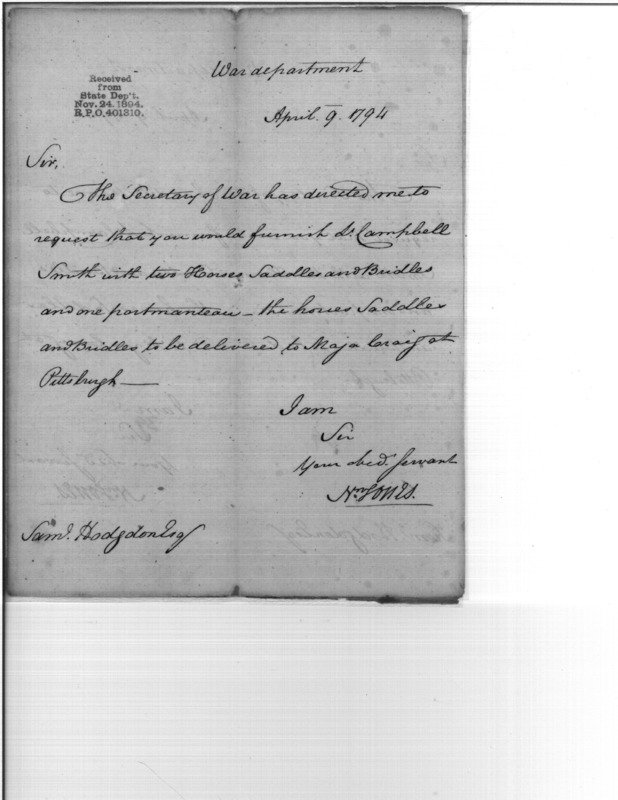 Received
from
State Dep't.
Nov. 24. 1894.
R.P.O. 401310.
War department
April 9. 1794
Sir,
The Secretary of War has directed me to
request that you would furnish Lt. Campbell
Smith with two Horses Saddles and Bridles
and one portmanteau — the horses Saddles
and Bridles to be delivered to Major Craig at
Pittsburgh —
I am
Sir
Your obed. Servant
Jones.
Saml. Hodgdon Esq